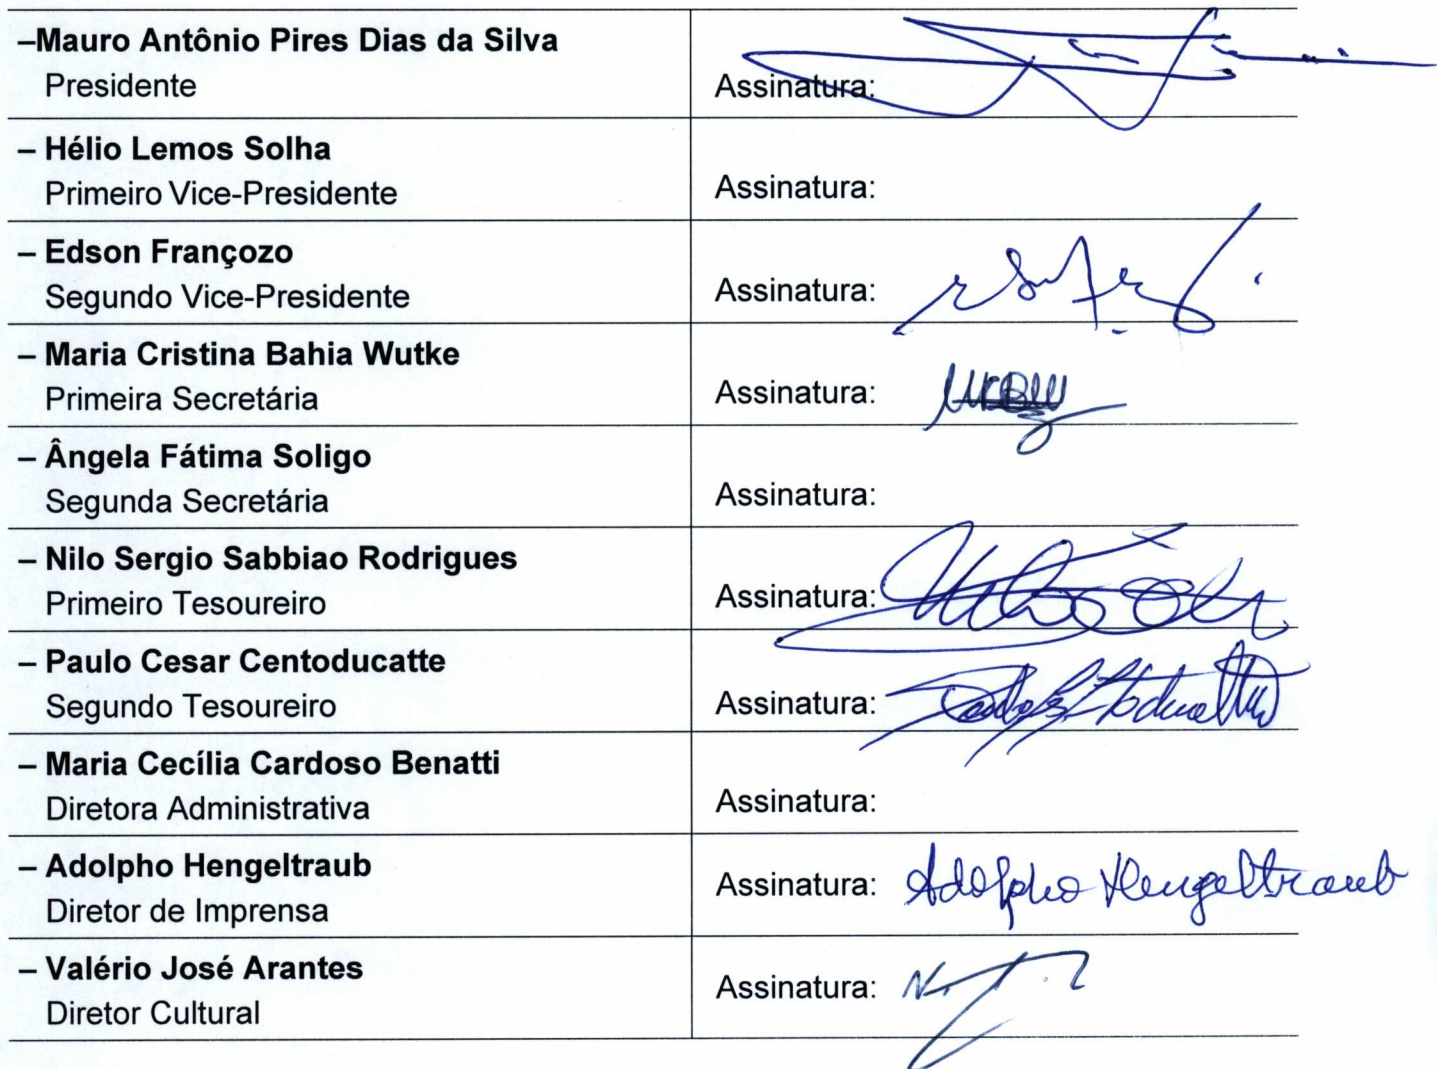 –Mauro Antônio Pires Dias da Silva
Presidente
Assinatura:
– Hélio Lemos Solha
Primeiro Vice-Presidente
Assinatura:
– Edson Françozo
Segundo Vice-Presidente
Assinatura:
– Maria Cristina Bahia Wutke
Primeira Secretária
Assinatura: MCBW
– Ângela Fátima Soligo
Segunda Secretária
Assinatura:
– Nilo Sergio Sabbiao Rodrigues
Primeiro Tesoureiro
Assinatura:
– Paulo Cesar Centoducatte
Segundo Tesoureiro
Assinatura:
– Maria Cecília Cardoso Benatti
Diretora Administrativa
Assinatura:
– Adolpho Hengeltraub
Diretor de Imprensa
Assinatura: Adolpho Hengeltraub
– Valério José Arantes
Diretor Cultural
Assinatura: